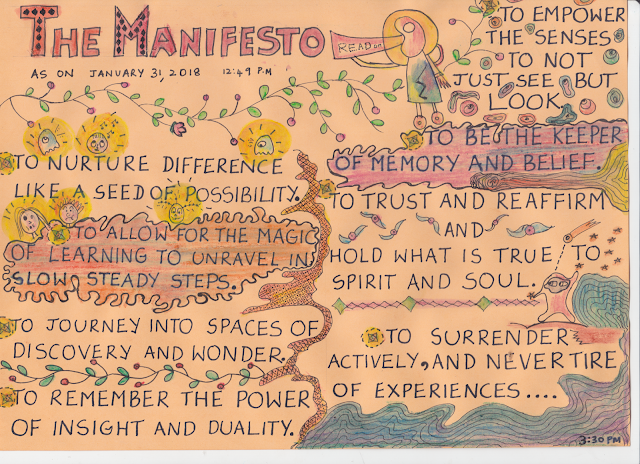 THE MANIFESTO
READ on
AS ON JANUARY 31, 2018 12:49 P.M
TO NURTURE DIFFERENCE
LIKE A SEED OF POSSIBILITY.
TO ALLOW FOR THE MAGIC
OF LEARNING TO UNRAVEL IN
SLOW STEADY STEPS.
TO JOURNEY INTO SPACES OF
DISCOVERY AND WONDER.
TO REMEMBER THE POWER
OF INSIGHT AND DUALITY.
TO EMPOWER
THE SENSES
TO NOT
JUST SEE BUT
LOOK.
TO BE THE KEEPER
OF MEMORY AND BELIEF.
TO TRUST AND REAFFIRM
AND
HOLD WHAT IS TRUE TO
SPIRIT AND SOUL.
TO SURRENDER
ACTIVELY, AND NEVER TIRE
OF EXPERIENCES....
3:30 PM